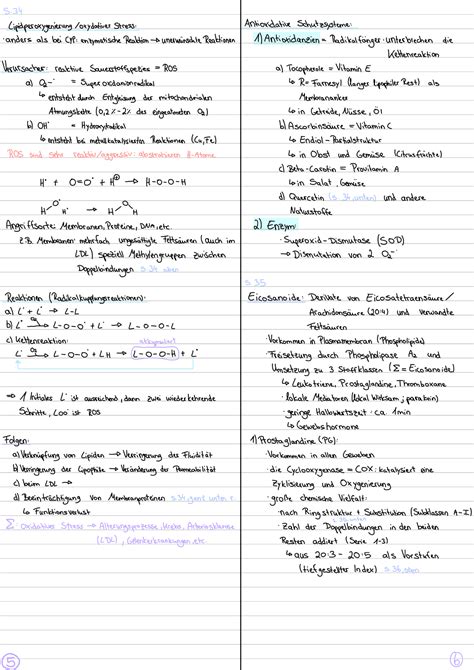 S.34
Lipidperoxygenierung/oxydativer Stress:
· anders als bei CP: enzymatische Reaktion → unerwünschte Reaktionen
Verursacher: reaktive Sauerstoffspezies = ROS
a) O₂⁻˙ = Superoxidanionradikal
↳ entsteht durch Entgleisung der mitochondrialen
Atmungskette (0,2%-2% des eingeatmeten O₂)
b) OH˙ = Hydroxylradikal
↳ entsteht bei metallkatalysierten Reaktionen (Cu, Fe)
ROS sind sehr reaktiv/aggressiv: abstrahieren H-Atome
H˙ + O=O˙ + H⁺ → H-O-O-H
H˙ O H → H O H
Angriffsorte: Membranen, Proteine, DNA, etc.
z.B. Membranen: mehrfach ungesättigte Fettsäuren (auch im
LDL) speziell Methylengruppen zwischen
Doppelbindungen S.34 oben
Reaktionen (Radikalkupplungsreaktionen):
a) L˙ + L˙ → L-L
b) L˙ → L-O-O˙ + L˙ → L-O-O-L
c) Kettenreaktion:
L˙ → L-O-O˙ + LH → L-O-O-H + L˙
⇒ 1 initiales L˙ ist ausreichend, dann zwei wiederkehrende
Schritte, LOO˙ ist ROS
Folgen:
a) Verknüpfung von Lipiden → Verringerung der Fluidität
b) Verringerung der Lipophilie → Veränderung der Permeabilität
c) beim LDL →
d) Beeinträchtigung von Membranproteinen S.34, ganz unten r.
↳ Funktionsverlust
Σ: Oxidativer Stress → Alterungsprozesse, Krebs, Arteriosklerose
(LDL), Gelenkerkrankungen, etc.
5
Antioxidative Schutzsysteme:
1) Antioxidanzien = Radikalfänger: unterbrechen die
Kettenreaktion
a) Tocopherole = Vitamin E
↳ R = Farnesyl (langer lipophiler Rest) als
Membrananker
↳ in Getreide, Nüsse, Öl
b) Ascorbinsäure = Vitamin C
↳ Endiol-Partialstruktur
↳ in Obst und Gemüse (Citrusfrüchte)
c) Beta-Carotin = Provitamin A
↳ in Salat, Gemüse
d) Quercetin (S.34, unten) und andere
Naturstoffe
2) Enzym:
· Superoxid-Dismutase (SOD)
→ Dismutation von 2 O₂⁻˙
S.35
Eicosanoide: Derivate von Eicosatetraensäure/
Arachidonsäure (20:4) und verwandte
Fettsäuren
· Vorkommen in Plasmamembran (Phospholipide)
· Freisetzung durch Phospholipase A₂ und
Umsetzung zu 3 Stoffklassen (Σ = Eicosanoide)
↳ Leukotriene, Prostaglandine, Thromboxane
· lokale Mediatoren (lokal wirksam; parakrin)
· geringe Halbwertszeit: ca. 1min
↳ Gewebshormone
1) Prostaglandine (PG):
· Vorkommen in allen Geweben
· die Cyclooxygenase = COX: katalysiert eine
Zyklisierung und Oxygenierung
· große chemische Vielfalt:
· nach Ringstruktur + Substitution (Subklassen A-I)
· Zahl der Doppelbindungen in den beiden
Resten addiert (Serie 1-3)
↳ aus 20:3 - 20:5 als Vorstufen
(tiefgestellter Index) S.36, oben
6